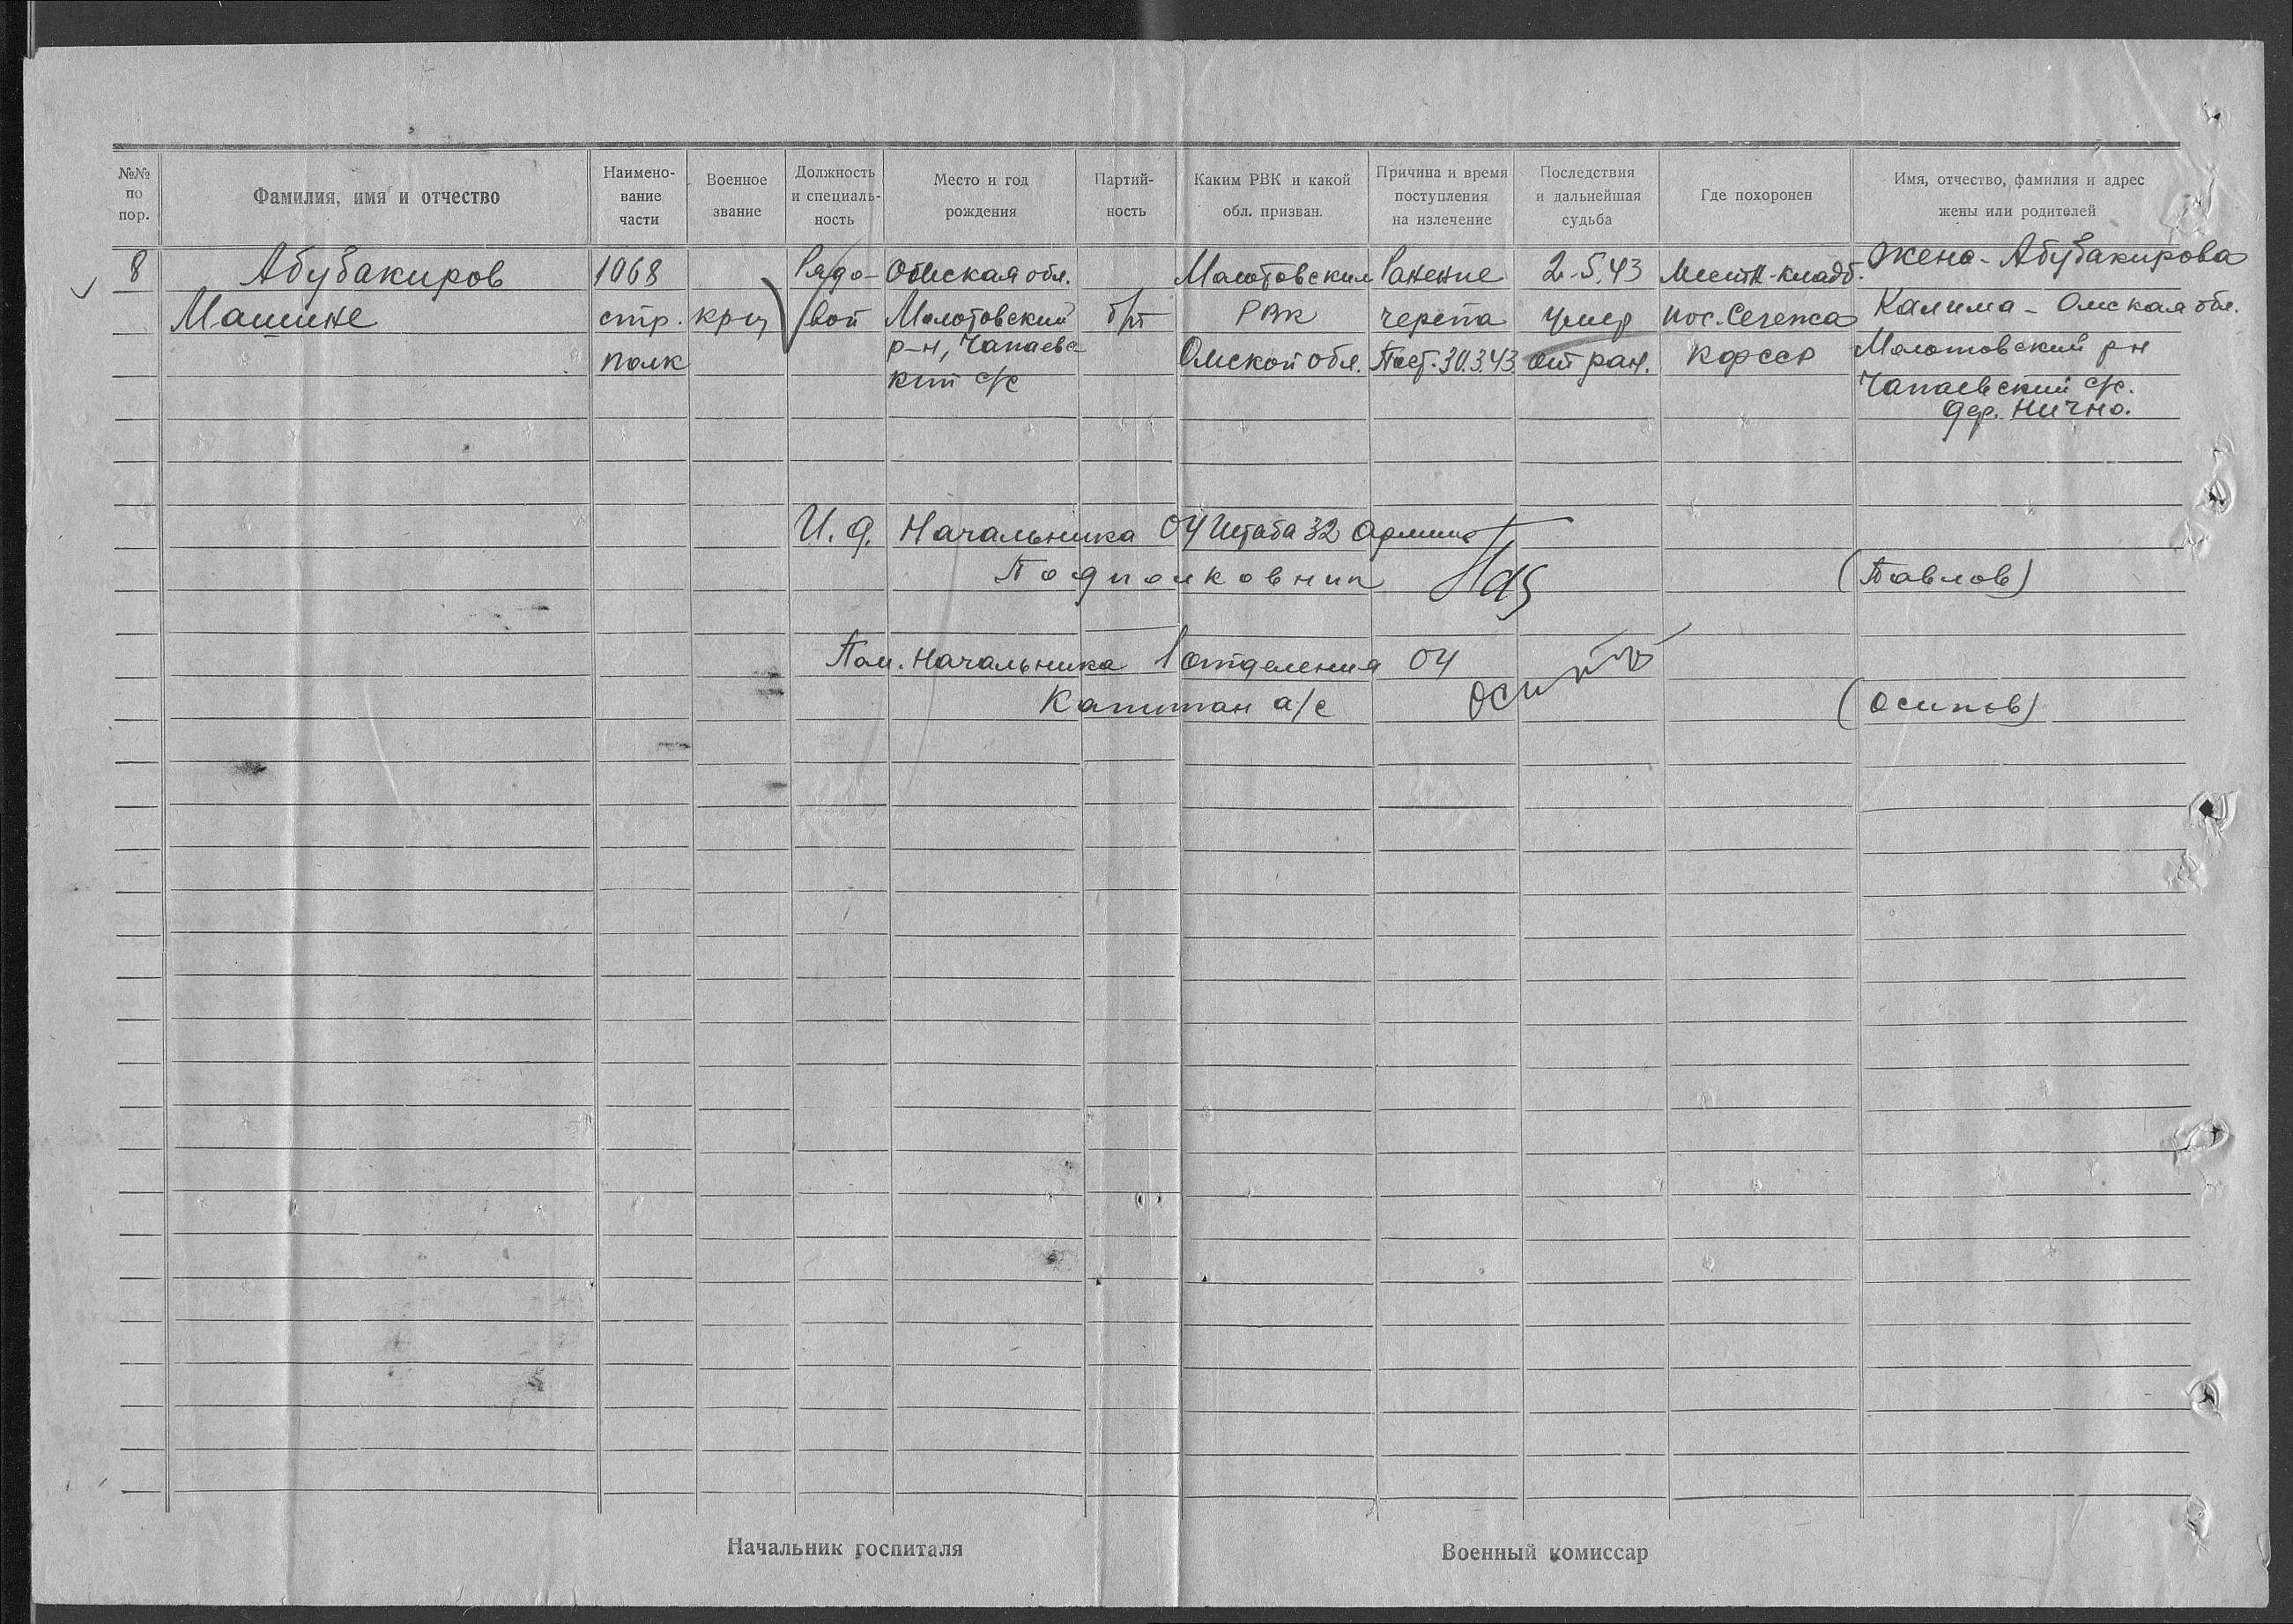 №№ по пор.
Фамилия, имя и отчество
Наимено-вание части
Военное звание
Должность и специаль-ность
Место и год рождения
Партий-ность
Каким РВК и какой обл. призван.
Причина и время поступления на излечение
Последствия и дальнейшая судьба
Где похоронен
Имя, отчество, фамилия и адрес жены или родителей
8
Абубакиров
Машине
1068
стр.
полк
крц
Рядо-
вой
Омская обл.
Молотовский
р-н, Чапаевс
кий с/с
б/п
Молотовским
РВК
Омской обл.
Ранение
черепа
Пост. 30.3.43
2.5.43
умер
от ран.
Местн. кладб.
пос. Сегежа
КФССР
Жена - Абубакирова
Калима - Омская обл.
Молотовский р-н
Чапаевский с/с.
дер.
И. д. Начальника ОУ Штаба 32 Армии
Подполковник
(Павлов)
Пом. Начальника 1 отделения ОУ
Капитан а/с
Осипов
(Осипов)
Начальник госпиталя
Военный комиссар